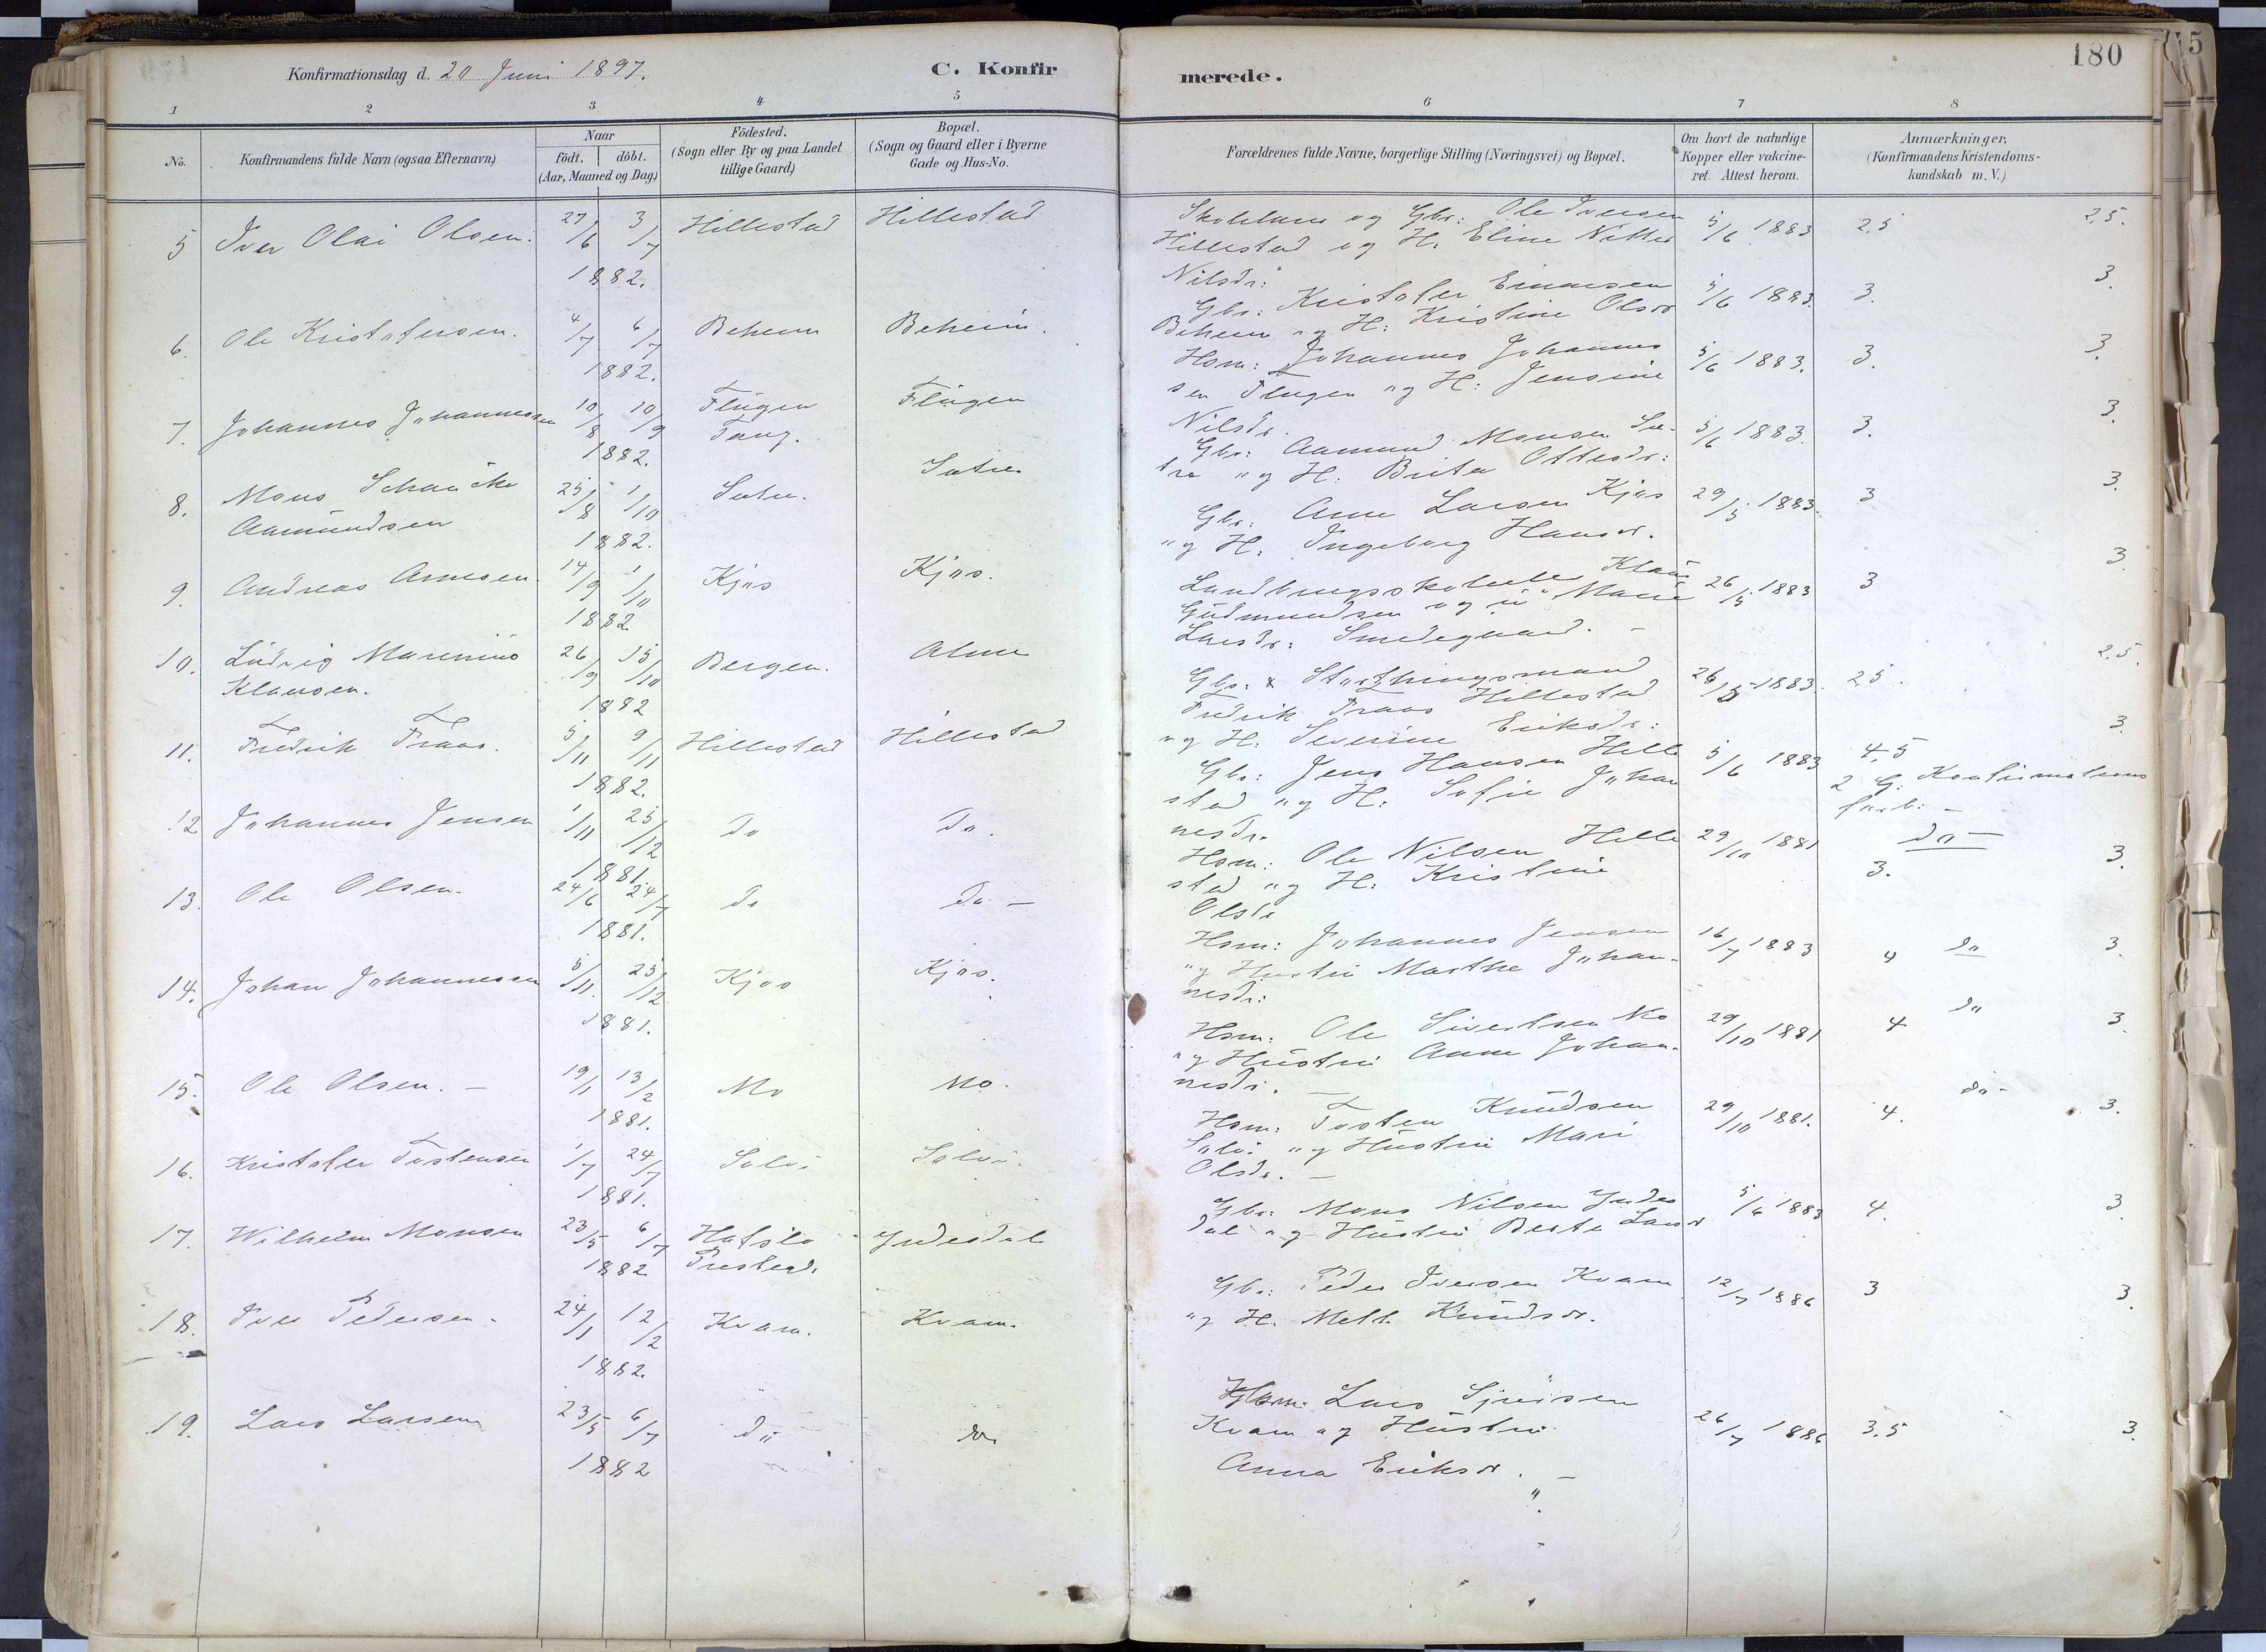 Konfirmationsdag d. 20 Juni 1897.
C. Konfir
merede.
180
1 2 3 4 5 6 7 8
No.
Konfirmandens fulde Navn (ogsaa Efternavn)
Naar
födt. döbt.
(Aar, Maaned og Dag)
Födested.
(Sogn eller By og paa Landet
tillige Gaard)
Bopæl.
(Sogn og Gaard eller i Byerne
Gade og Hus-No.
Forældrenes fulde Navne, borgerlige Stilling (Næringsvei) og Bopæl.
Om havt de naturlige
Kopper eller vakcine-
ret. Attest herom.
Anmærkninger,
(Konfirmandens Kristendoms-
kundskab m. V.)
5 Iver Olai Olsen. 27/6 3/7 1882. Hillestad Hillestad
og Gbr: Ole Iversen
Hillestad og H: Eline
Nilsdr: 5/6 1883 2.5 2.5.
6. Ole Kristofersen. 4/7 6/7 1882. Beheim Beheim.
Gbr: Kristofer Einarsen
Beheim og H: Kristine Olsdr 5/6 1883. 3. 3.
7. Johannes Johannessen 10/8 10/9 1882. Flugen Flugen
Hsm: Johannes Johannes
sen Flugen og H: Jensine
Nilsdr. 5/6 1883. 3. 3.
8. Mons Schaücke
Aamundsen 25/8 1/10 1882. Sætre. Sætre
Gbr: Aamund Monsen Sæ-
tre og H: Brita Ottesdr: 5/6 1883. 3. 3.
9. Andreas Arnesen. 14/9 1/10 1882 Kjos Kjos.
Gbr: Arne Larsen Kjos
og H: Ingeborg Hansdr. 29/5 1883. 3 3.
10. Ludvig Marenius
Klausen. 26/9 15/10 1882 Bergen. Alme
Klaus
Gudmundsen og Marie
Larsdr: Smedegaard. - 26/5 1883 3 3.
11. Fredrik Fraas. 5/11 9/11 1882. Hillestad Hillestad
Gbr: & Storthingsmand
Fredrik Fraas Hillestad
og H: Severine Eriksdr: 26/5 1883. 2.5. 2.5.
12 Johannes Jensen 1/11 25/12 1881. Do Do.
Gbr: Jens Hansen Hille
stad og H: Sofie Johan
nesdr. 5/6 1883 4.5 3.
2 G. Konfirmations
forb: -
13. Ole Olsen. 24/6 24/7 1881. Do Do -
Hsm: Ole Nilsen Hille
stad og H: Kristine
Olsdr 29/10 1881 do - 3. 3.
14. Johan Johannessen 5/11. 25/12 1881. Kjos Kjos.
Hsm: Johannes Jensen
og Hustru Marthe Johan-
nesdr: 16/7 1883 4 do 3.
15. Ole Olsen. - 19/1 13/2 1881. Mo Mo.
Hsm: Ole Sivertsen Mo
og Hustru Anne Johan-
nesdr. - 29/10 1881 4 do 3.
16. Kristofer Tostensen 1/7 24/7 1881. Solvi Solvi.
Hsm: Tosten Knudsen
Solvi og Hustru Mari
Olsdr. - 29/10 1881. 4. do - 3.
17. Wilhelm Monsen 23/5 6/7 1882 Hafslo
Presteg. Indesdal
Gbr: Mons Nilsen Indes
dal og Hustru Berte Larsdr 5/6 1883 4. 3.
18. Iver Pedersen. 24/1 12/2 1882. Kvam. Kvam.
Gbr: Peder Iversen Kvam
og H. Mette Knudsdr. 12/7 1886 3 3.
19. Lars Larsen 23/5 6/7 1882 do do
Hsm. Lars Sjursen
Kvam og Hustru
Anna Eriksdr. - 26/7 1886 3.5 3.